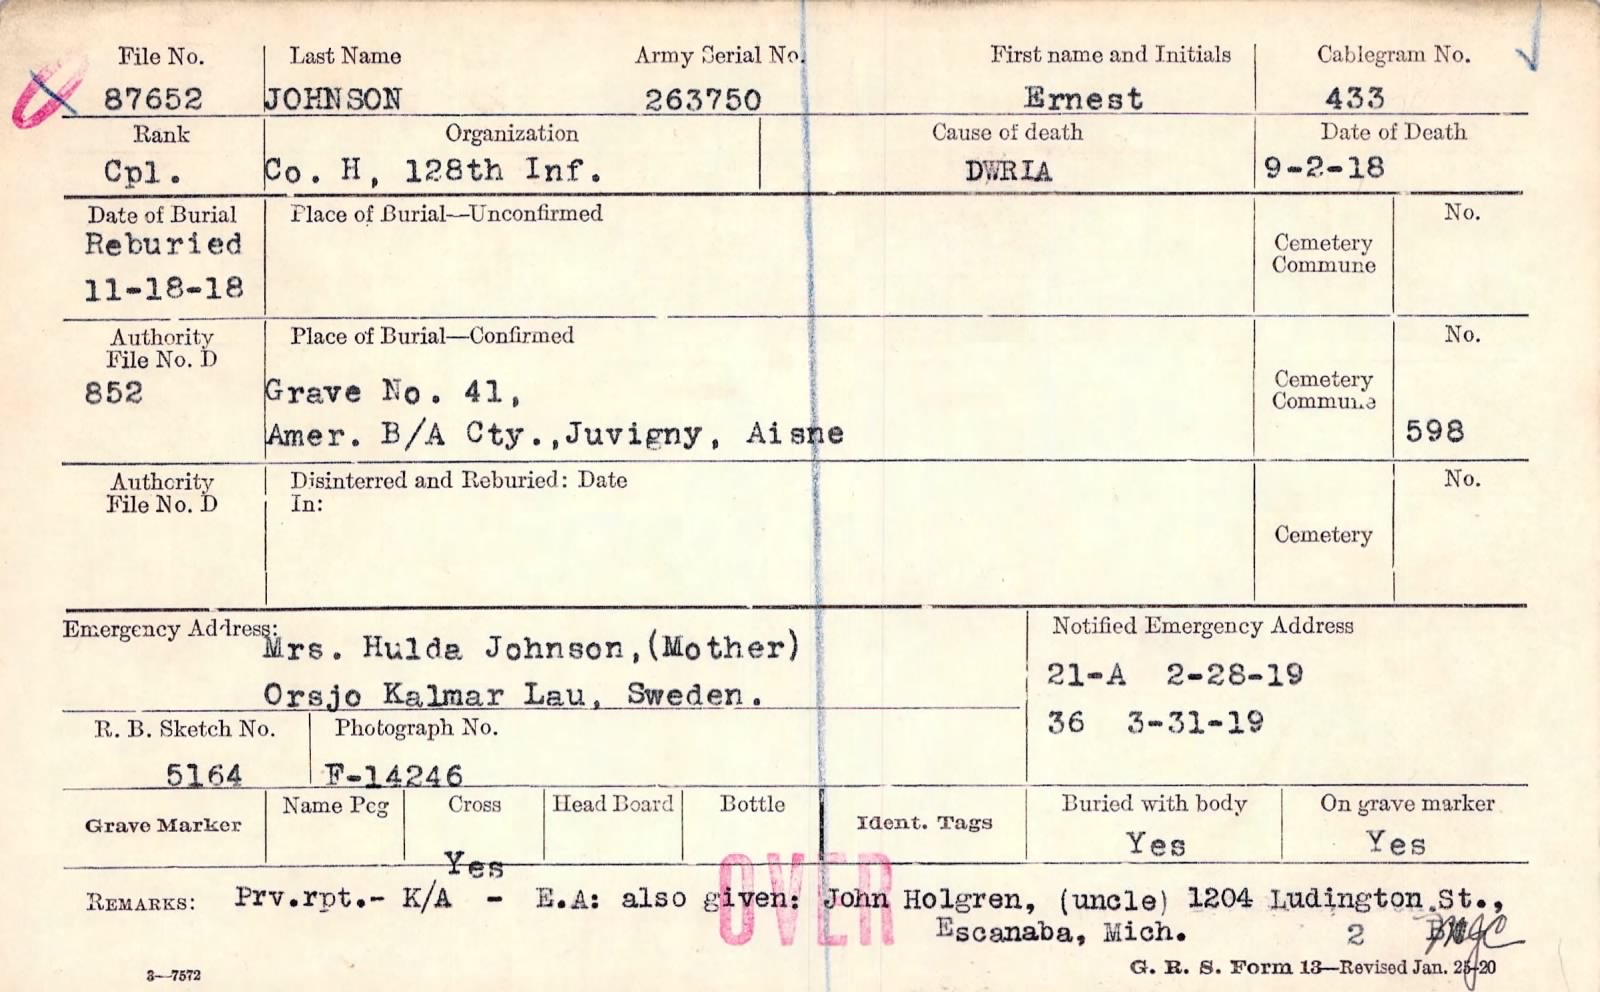 File No. Last Name Army Serial No. First name and Initials Cablegram No.
87652 JOHNSON 263750 Ernest 433
Rank Organization Cause of death Date of Death
Cpl. Co. H, 128th Inf. DWRIA 9-2-18
Date of Burial Place of Burial—Unconfirmed No.
Reburied Cemetery
11-18-18 Commune
Authority Place of Burial—Confirmed No.
File No. D
852 Grave No. 41, Cemetery
Commune
Amer. B/A Cty.,Juvigny, Aisne 598
Authority Disinterred and Reburied: Date No.
File No. D In:
Cemetery
Emergency Address: Mrs. Hulda Johnson,(Mother) Notified Emergency Address
Orsjo Kalmar Lau, Sweden. 21-A 2-28-19
R. B. Sketch No. Photograph No. 36 3-31-19
5164 F-14246
Grave Marker Name Peg Cross Head Board Bottle Ident. Tags Buried with body On grave marker
Yes Yes Yes
OVER
REMARKS: Prv.rpt.- K/A - E.A: also given: John Holgren, (uncle) 1204 Ludington St.,
Escanaba, Mich. 2
3—7572 G. R. S. Form 13—Revised Jan. 25-20